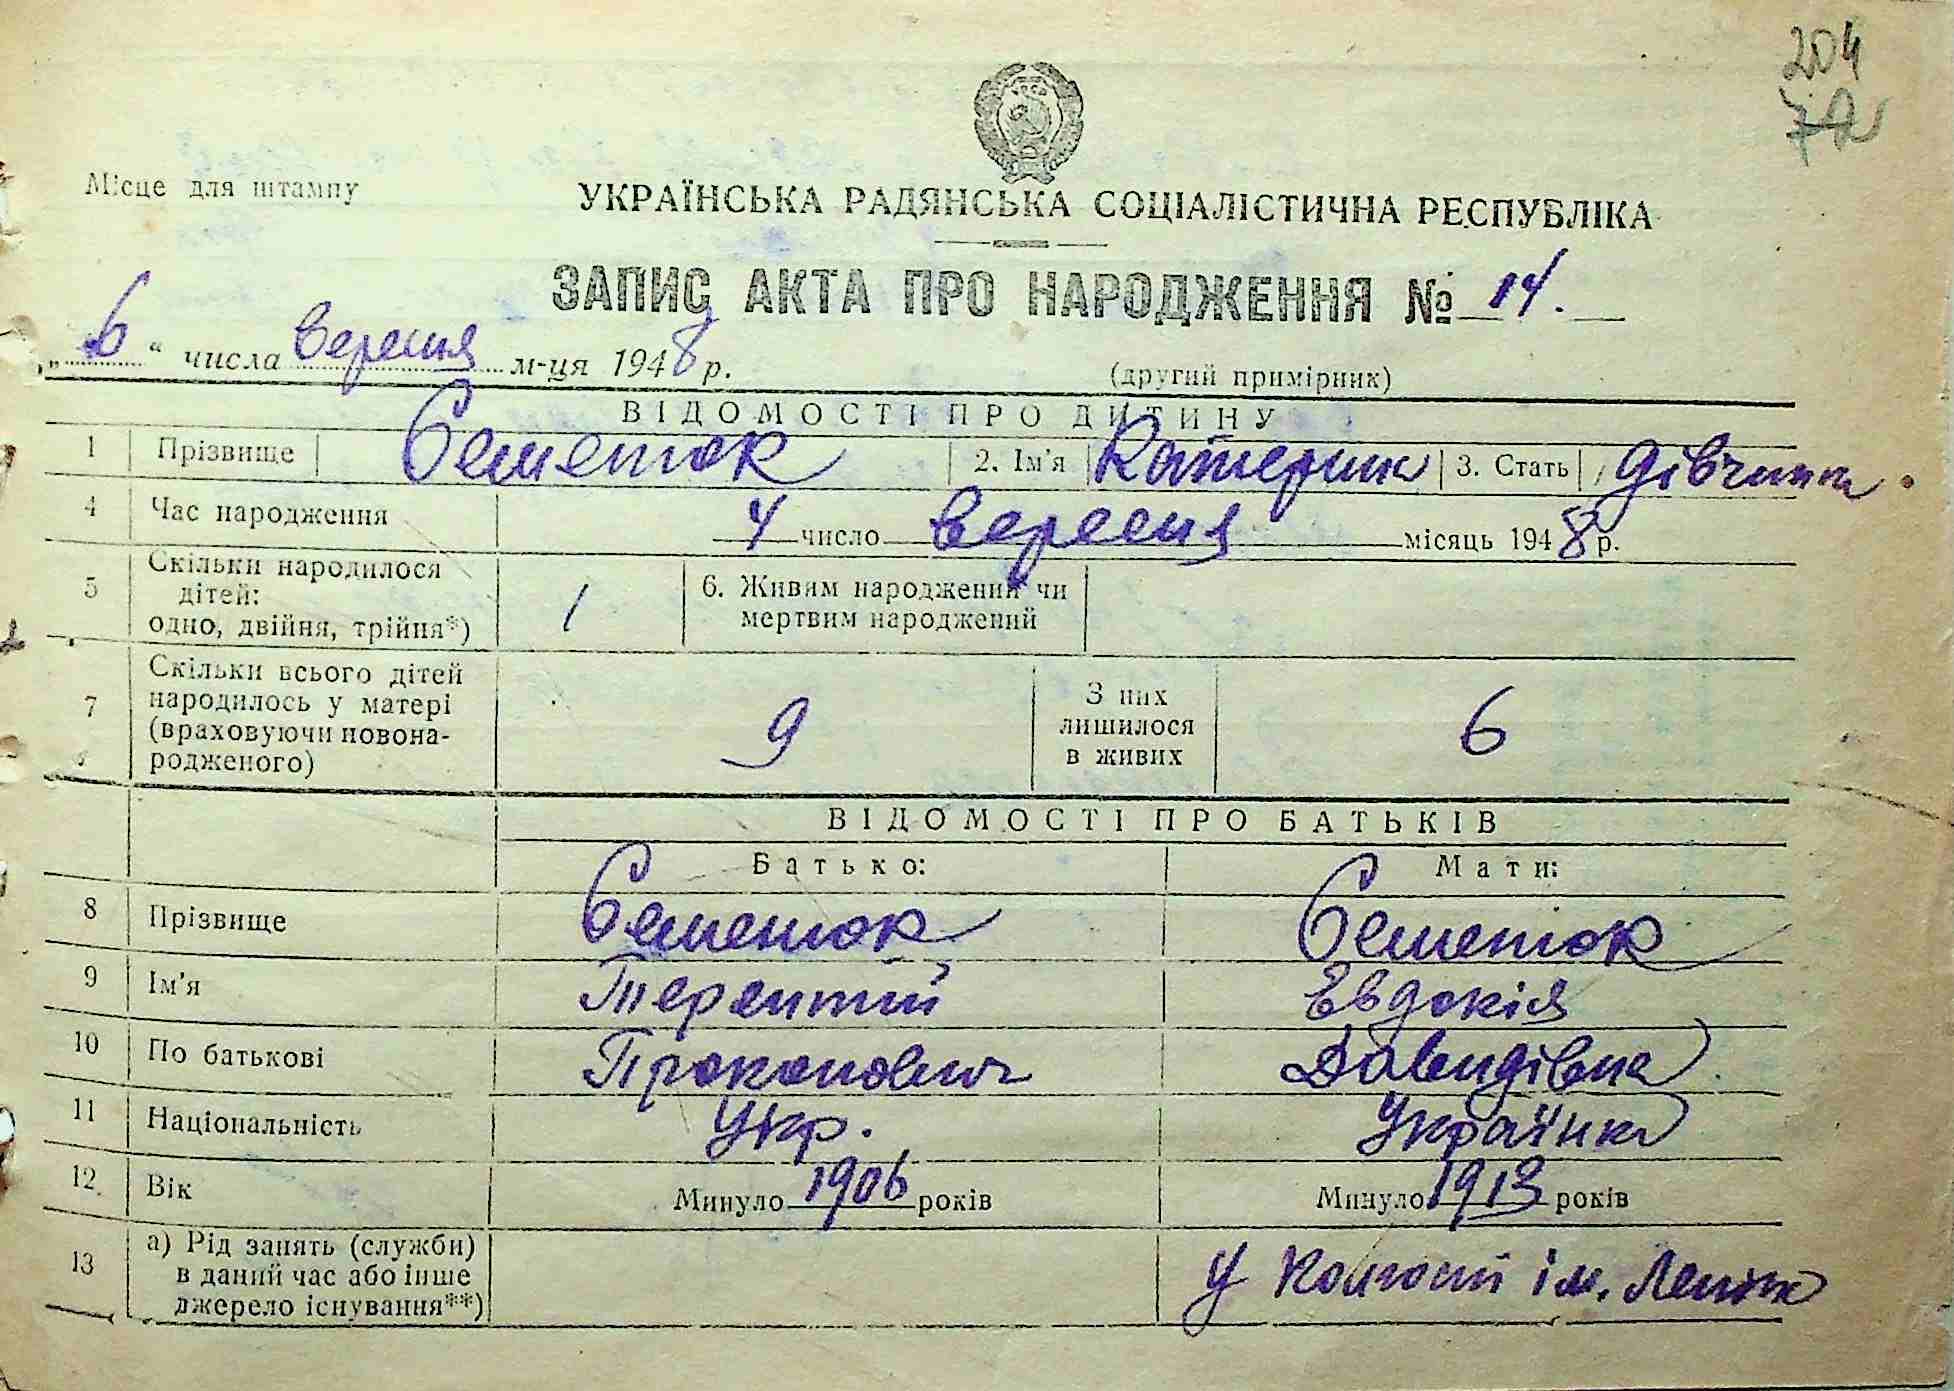 204
Місце для штампу
УКРАЇНСЬКА РАДЯНСЬКА СОЦІАЛІСТИЧНА РЕСПУБЛІКА
ЗАПИС АКТА ПРО НАРОДЖЕННЯ № 14.
„ 6 “ числа вересня м-ця 1948 р.
(другий примірник)
ВІДОМОСТІ ПРО ДИТИНУ
1 Прізвище Семенюк 2. Ім'я Катерина 3. Стать дівчина.
4 Час народження 4 число вересня місяць 1948 р.
5 Скільки народилося дітей: одно, двійня, трійня*) 1 6. Живим народжений чи мертвим народжений
7 Скільки всього дітей народилось у матері (враховуючи новонародженого) 9 З них лишилося в живих 6
ВІДОМОСТІ ПРО БАТЬКІВ
Батько: Мати:
8 Прізвище Семенюк Семенюк
9 Ім'я Терентій Евдокія
10 По батькові Прокопович Давидівна
11 Національність Укр. Українка
12. Вік Минуло 1906 років Минуло 1913 років
13 а) Рід занять (служби) в даний час або інше джерело існування**) у колгоспі ім. Леніна